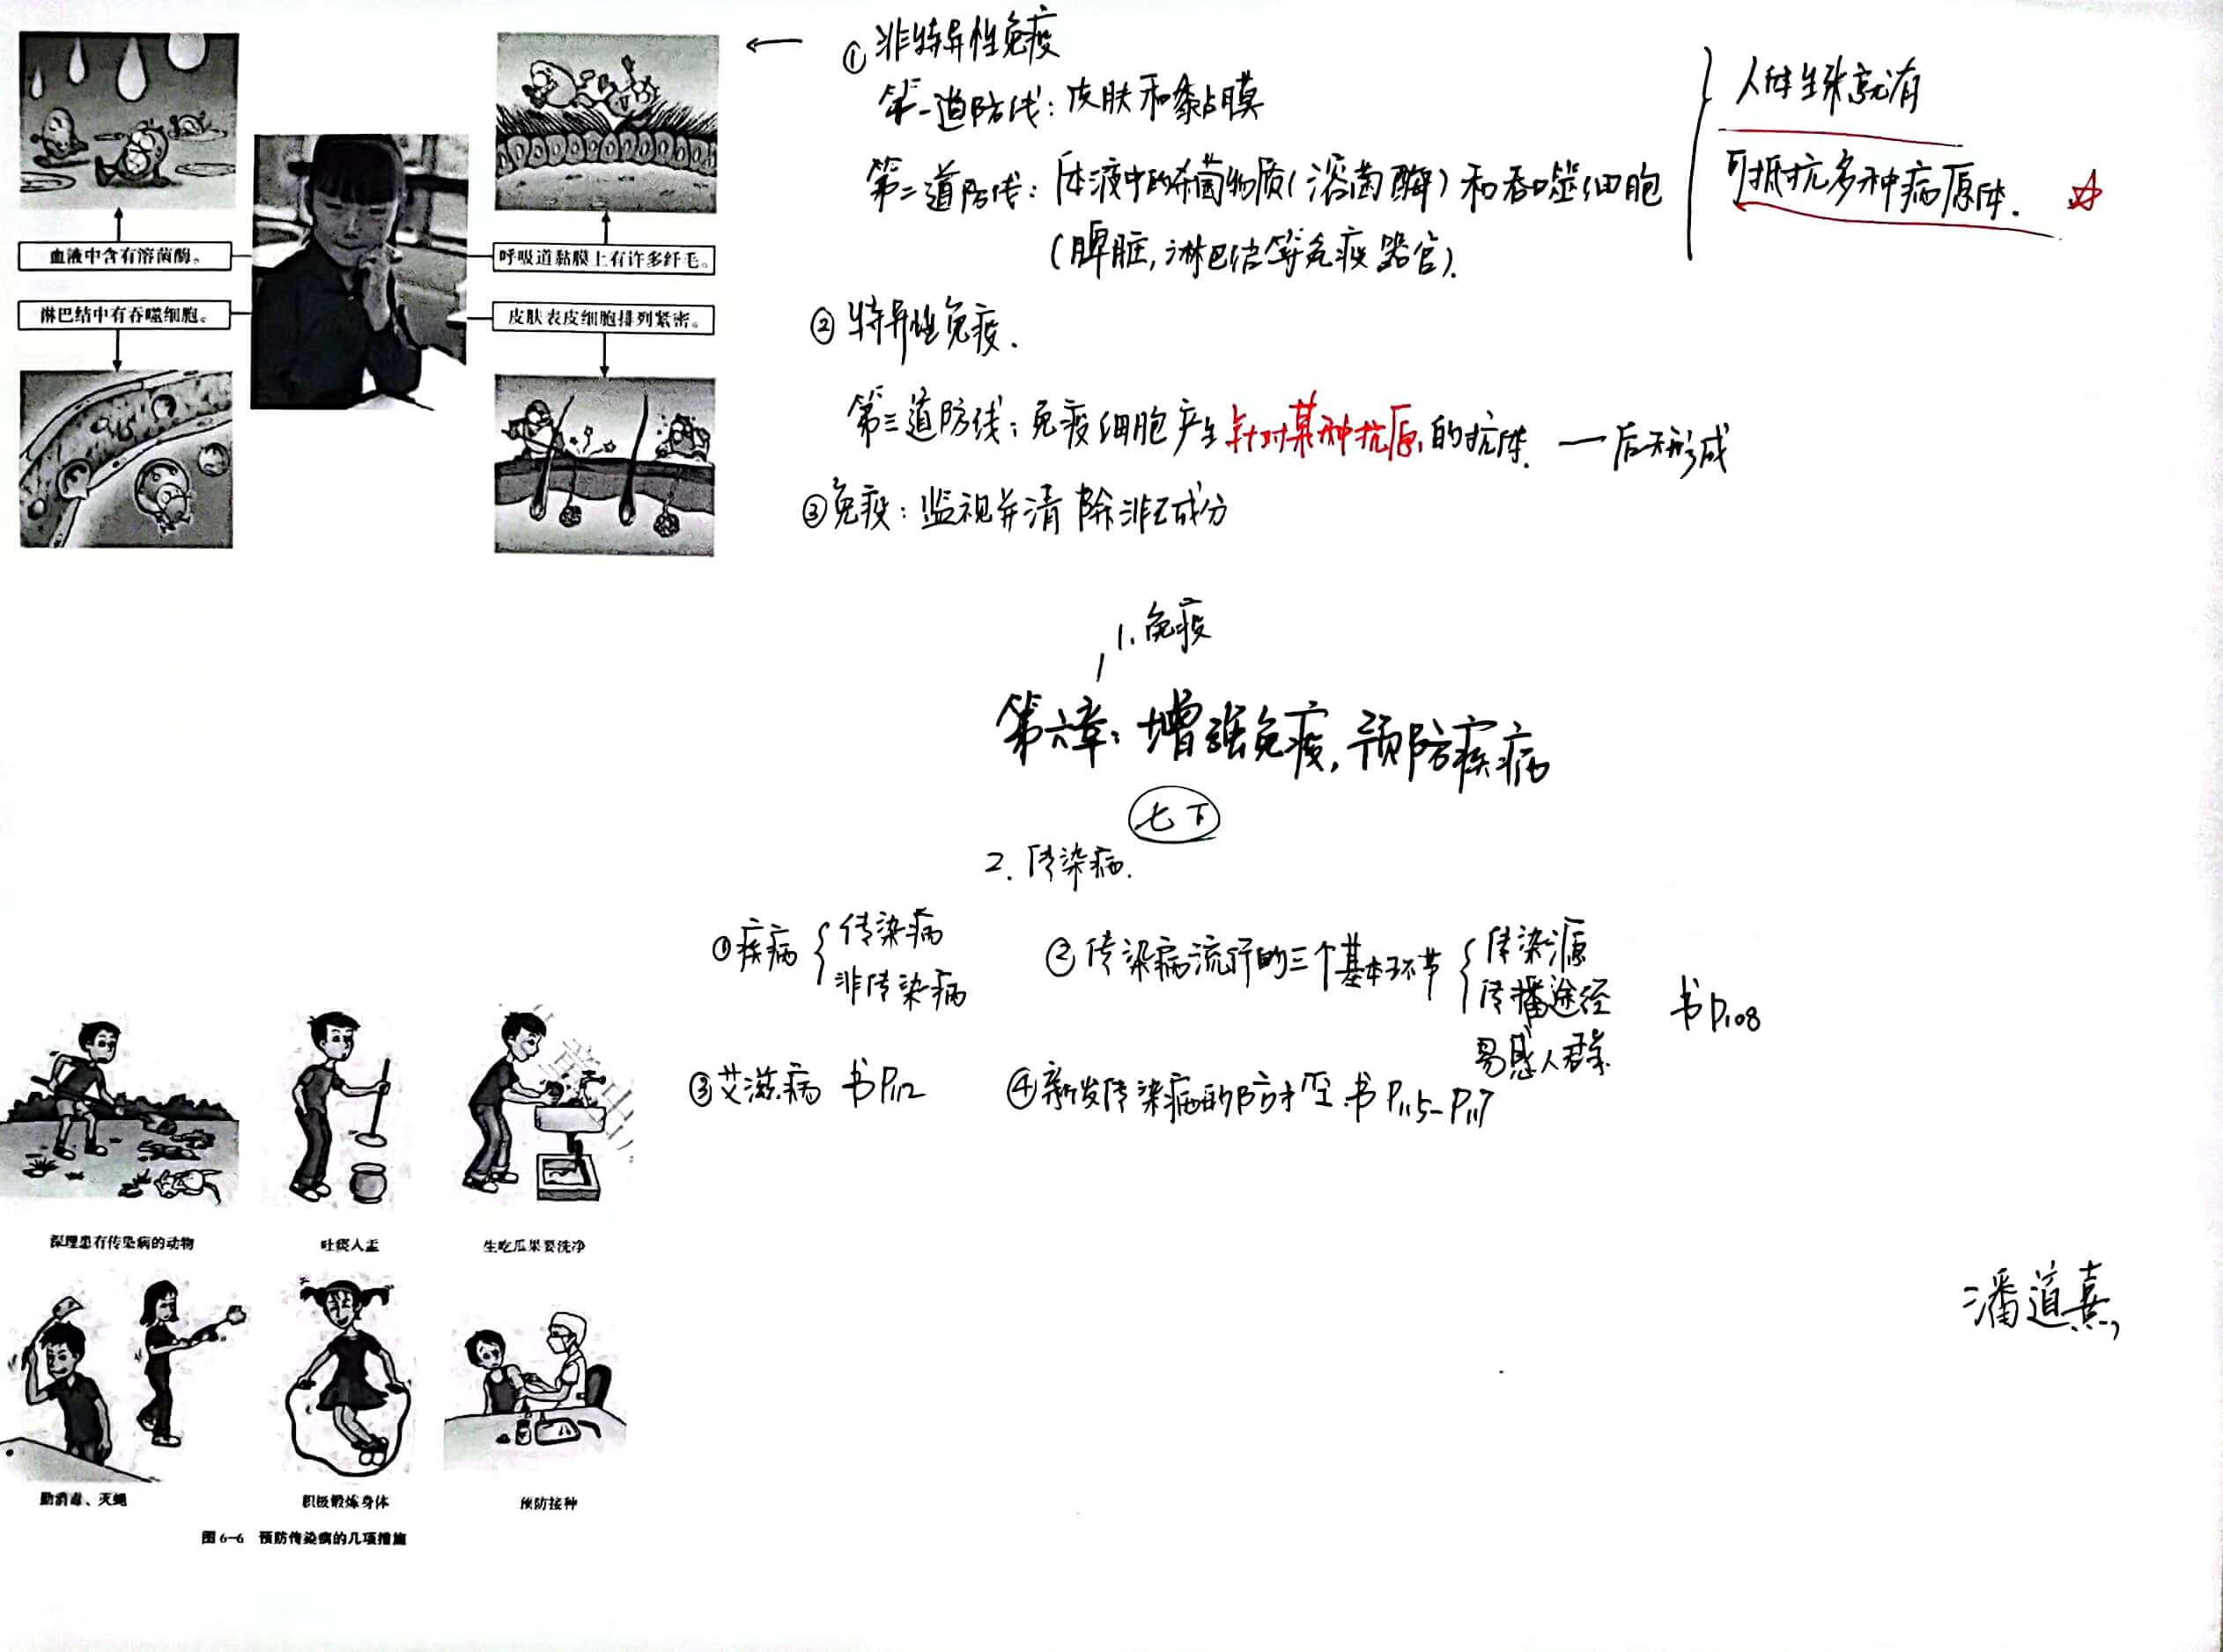 血液中含有溶菌酶。
淋巴结中有吞噬细胞。
呼吸道黏膜上有许多纤毛。
皮肤表皮细胞排列紧密。
① 非特异性免疫
第一道防线：皮肤和黏膜
第二道防线：体液中的杀菌物质（溶菌酶）和吞噬细胞
（脾脏，淋巴结等免疫器官）.
人体生来就有
可抵抗多种病原体.
② 特异性免疫.
第三道防线：免疫细胞产生针对某种抗原的抗体. — 后天形成
③ 免疫：监视并清除非己成分
1. 免疫
第六章：增强免疫，预防疾病
七下
2. 传染病.
① 疾病
传染病
非传染病
② 传染病流行的三个基本环节
传染源
传播途径
易感人群
书P108
③ 艾滋病 书P112
④ 新发传染病的防控 书P115-P117
深埋患有传染病的动物
吐痰入盂
生吃瓜果要洗净
勤消毒、灭蝇
积极锻炼身体
预防接种
图6-6 预防传染病的几项措施
潘道熹